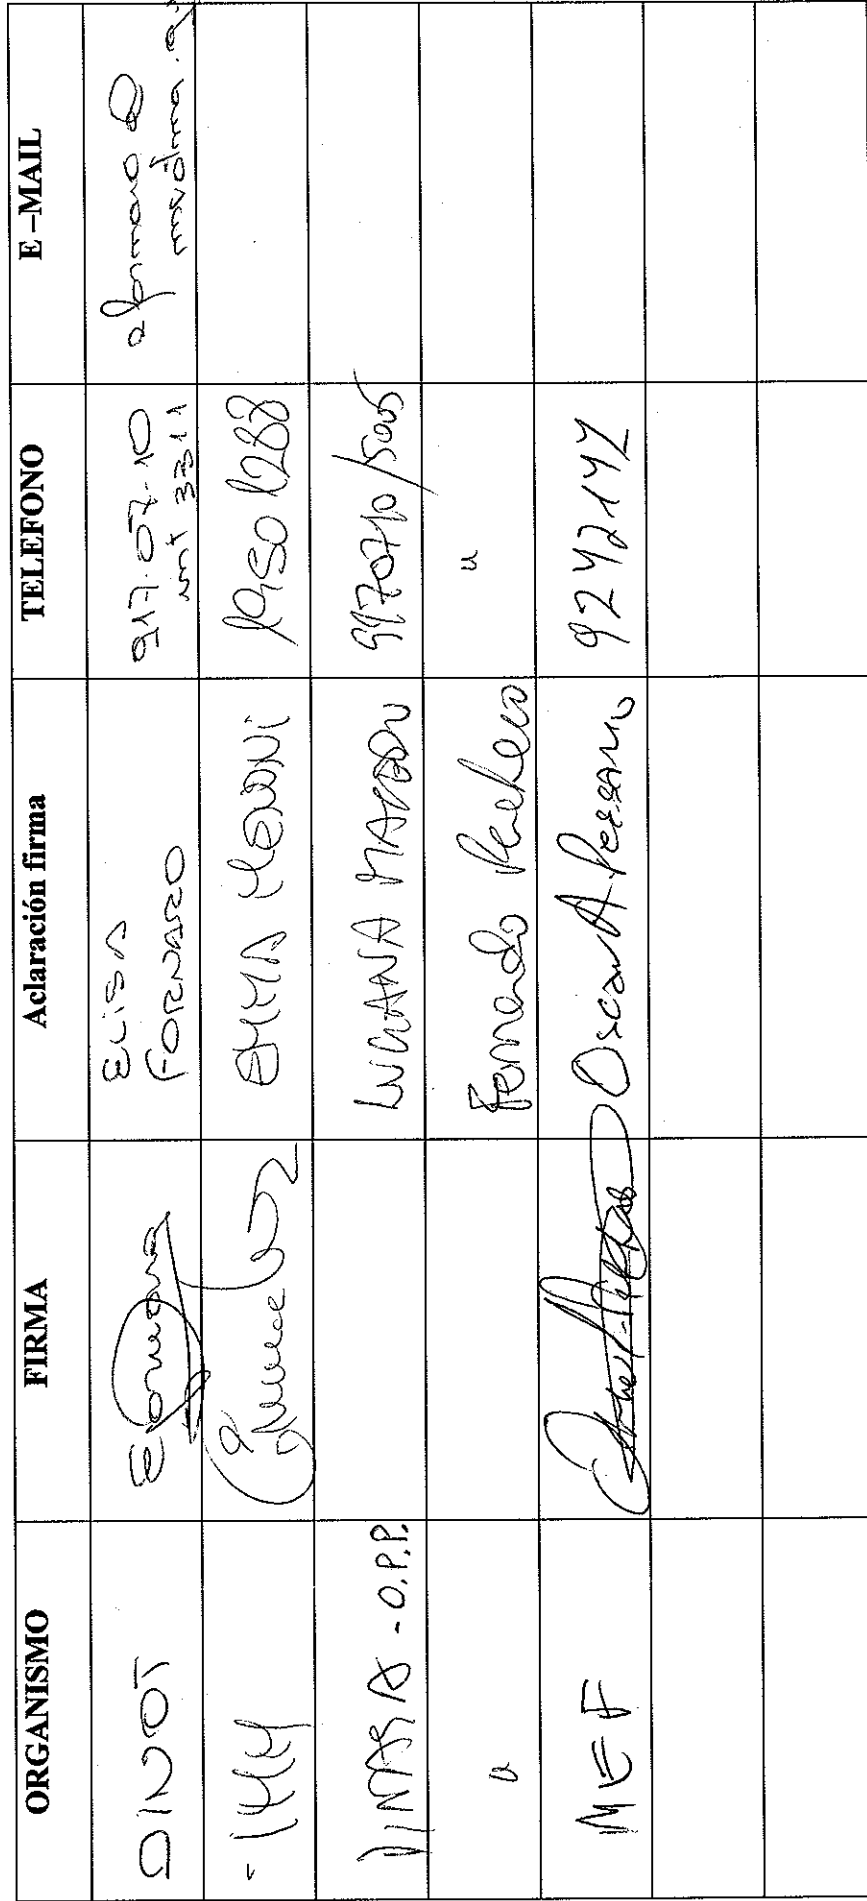 ORGANISMO FIRMA Aclaración firma TELEFONO E –MAIL
DINOT ELISA FORNARO 917-07-10 int 3311
IMM EMMA 1950 1288
DINAMA - O.P.P. LUCIANA 9170710/5005
" Fernando Pacheco "
MEF Oscar A. Persano 9242142